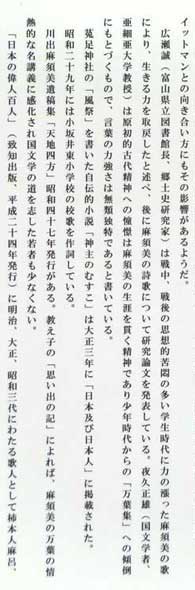 イットマンとの向き合い方にもその影響があるようだ。
広瀬誠（富山県立図書館長、郷土史研究家）は戦中、戦後の思想的苦悶の多い学生時代に力の漲った麻須美の歌
により、生きる力を取戻したと述べ、後に麻須美の詩歌について研究論文を発表している。夜久正雄（国文学者、
亜細亜大学教授）は原初的古代精神への憧憬は麻須美の生涯を貫く精神であり少年時代からの「万葉集」への傾倒
にもとづくもので、言葉の力強さは無類独特であると書いている。
菟足神社の「風祭」を書いた自伝的小説「神主のむすこ」は大正三年に「日本及び日本人」に掲載された。
昭和二十九年には小坂井東小学校の校歌を作詞している。
川出麻須美遺稿集「天地四方」昭和四十七年発行がある。教え子の「思い出の記」によれば、麻須美の万葉の情
熱的な名講義に感化され国文学の道を志した若者も少なくない。
「日本の偉人百人」（致知出版　平成二十四年発行）に明治、大正、昭和三代にわたる歌人として柿本人麻呂、